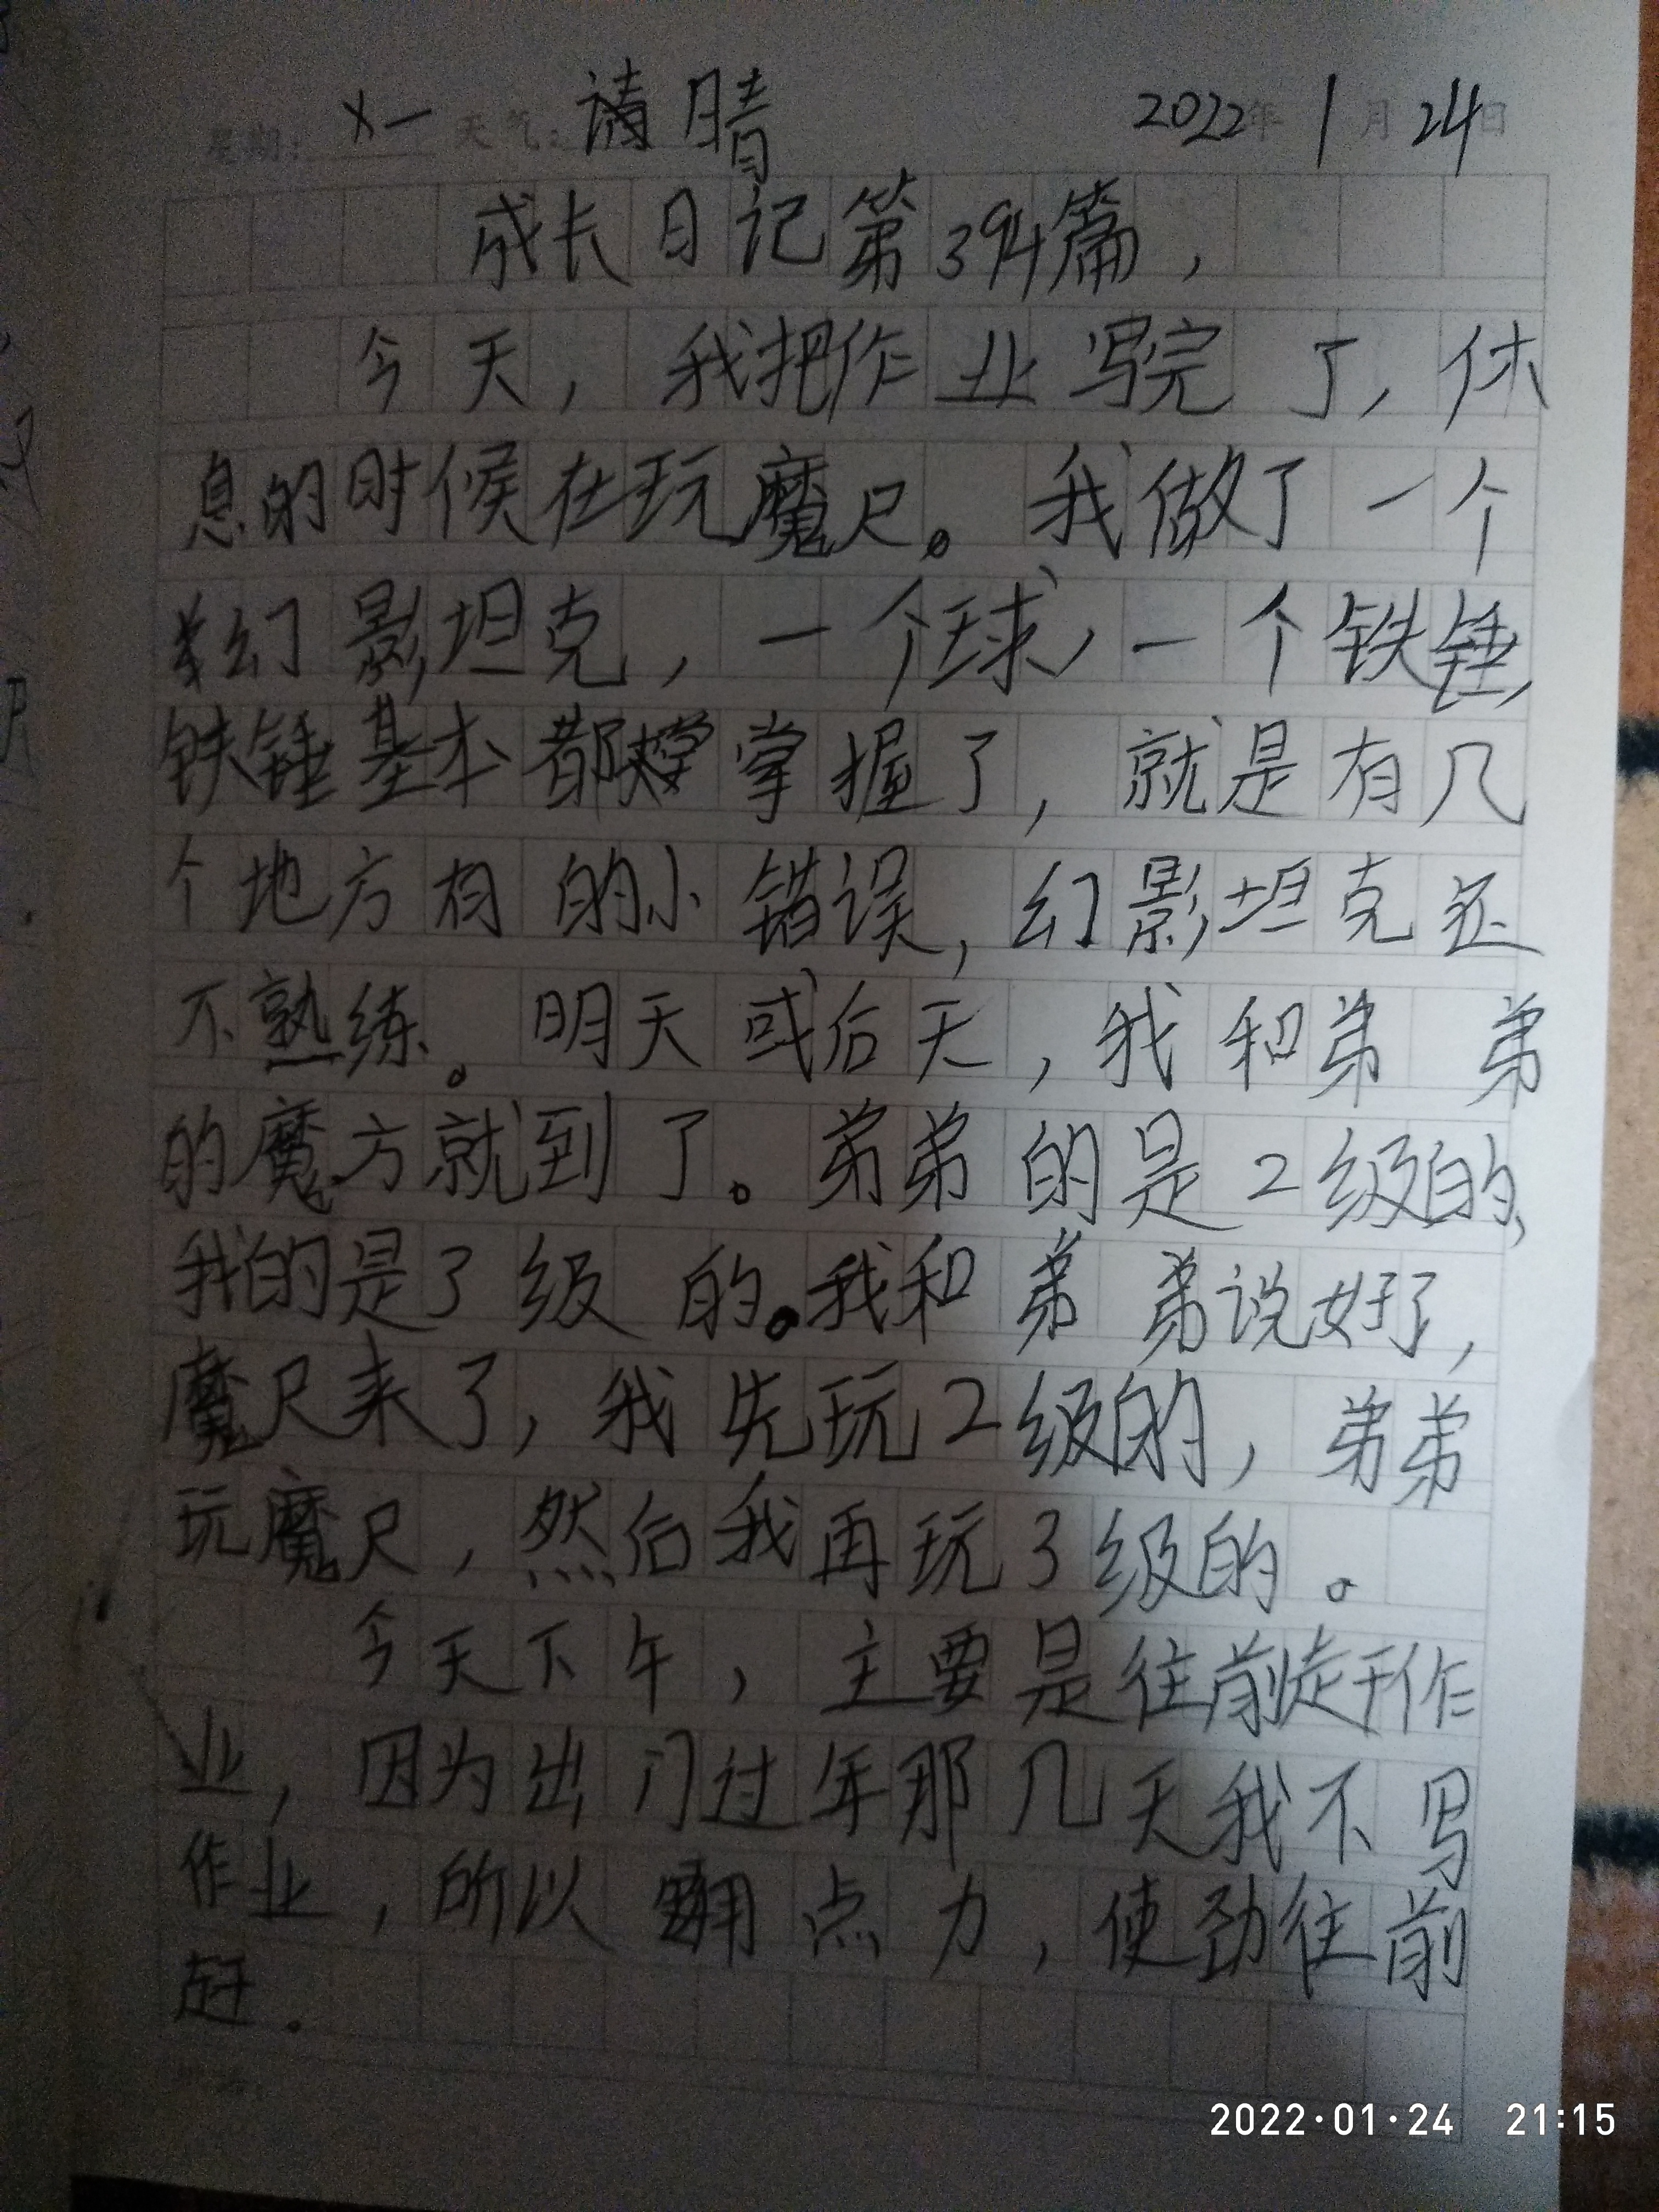 星期: 一 天气: 晴 2022年1月24日
成长日记第394篇,
今天,我把作业写完了,休
息的时候在玩魔尺。我做了一个
幻影坦克,一个球,一个铁锤,
铁锤基本都掌握了,就是有几
个地方有的小错误,幻影坦克还
不熟练。明天或后天,我和弟弟
的魔方就到了。弟弟的是2级的,
我的是3级的。我和弟弟说好了,
魔尺来了,我先玩2级的,弟弟
玩魔尺,然后我再玩3级的。
今天下午,主要是往前赶作
业,因为出门过年那几天我不写
作业,所以要用点力,使劲往前
赶.
2022·01·24 21:15